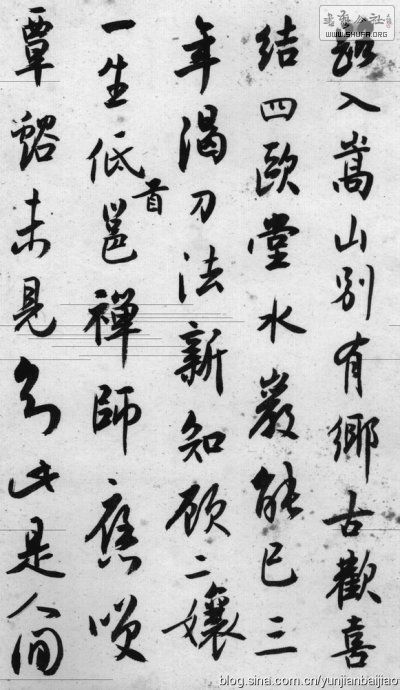 路入嵩山別有鄉古歡喜
結四歐堂水巖能已三
年渴刀法新知顧二孃
一生低首邕禪師應咲
覃谿未見知此是人間
書藝公社
WWW.SHUFA.ORG
blog.sina.com.cn/yunjianbaijiao